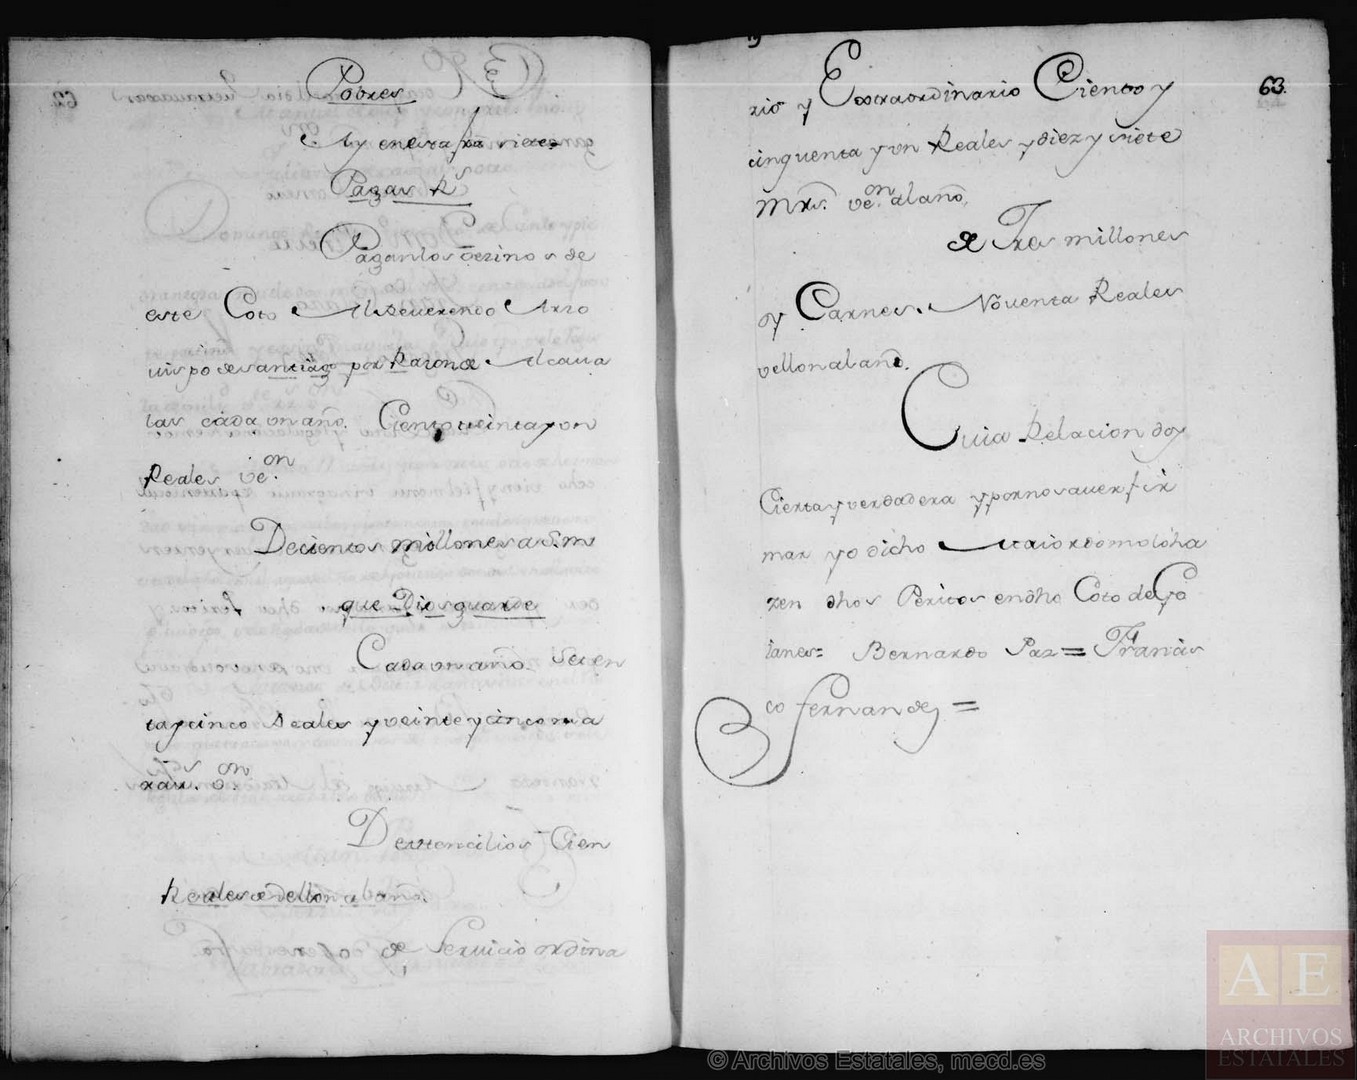 Pobres
Ay en esta fra siete=
Pagas Rs
Pagan los vezinos de
este Coto Al Reverendo Arzo
uispo de santiago por Razon de Alcaua
las cada un año. Ciento treinta y un
Reales veon
De cientos millones a S.M.
que Dios guarde
Cada un año. Seten
ta y cinco Reales y veinte y cinco ma
raus. von
De Utencilios Cien
Reales de vellon al año.
de Servicio ordina
63.
rio y Extraordinario Ciento y
cinquenta y un Reales y diez y siete
Mrs. veon al año.
de Tres millones
y Carnes. Noventa Reales
vellon al año.
Cuia Relacion doy
Cierta y verdadera y por no sauer fir
mar yo dicho Maiordomo lo ha
zen dhos Peritos en dho Coto de Go
ianes= Bernardo Paz= Francis
co fernandez=
© Archivos Estatales, mecd.es
AE
ARCHIVOS
ESTATALES